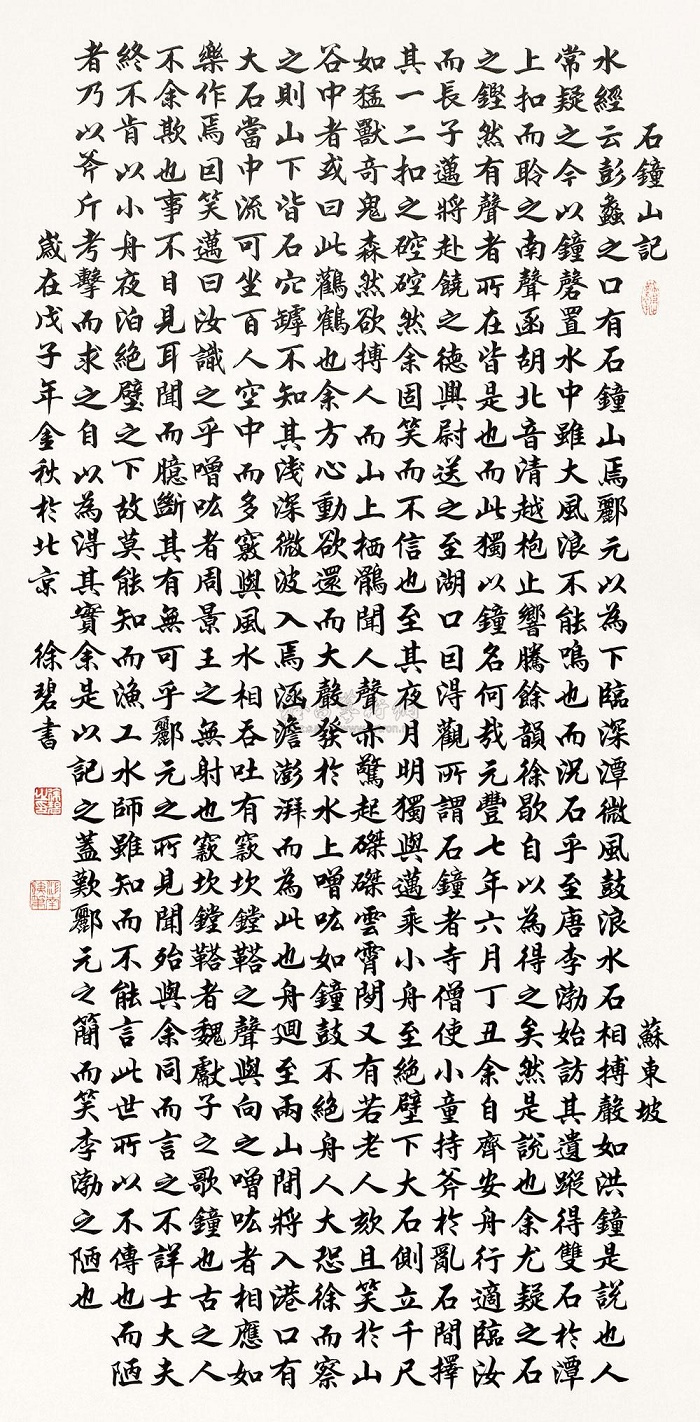 石鐘山記
蘇東坡
水經云彭蠡之口有石鐘山焉酈元以為下臨深潭微風鼓浪水石相搏聲如洪鐘是說也人
常疑之今以鐘磬置水中雖大風浪不能鳴也而況石乎至唐李渤始訪其遺蹤得雙石於潭
上扣而聆之南聲函胡北音清越枹止響騰餘韻徐歇自以為得之矣然是說也余尤疑之石
之鏗然有聲者所在皆是也而此獨以鐘名何哉元豐七年六月丁丑余自齊安舟行適臨汝
而長子邁將赴饒之德興尉送之至湖口因得觀所謂石鐘者寺僧使小童持斧於亂石間擇
其一二扣之硿硿然余固笑而不信也至其夜月明獨與邁乘小舟至絕壁下大石側立千尺
如猛獸奇鬼森然欲搏人而山上栖鶻聞人聲亦驚起磔磔雲霄間又有若老人欬且笑於山
谷中者或曰此鸛鶴也余方心動欲還而大聲發於水上噌吰如鐘鼓不絕舟人大恐徐而察
之則山下皆石穴罅不知其淺深微波入焉涵澹澎湃而為此也舟迴至兩山間將入港口有
大石當中流可坐百人空中而多竅與風水相吞吐有窾坎鏜鞳之聲與向之噌吰者相應如
樂作焉因笑邁曰汝識之乎噌吰者周景王之無射也窾坎鏜鞳者魏獻子之歌鐘也古之人
不余欺也事不目見耳聞而臆斷其有無可乎酈元之所見聞殆與余同而言之不詳士大夫
終不肯以小舟夜泊絕壁之下故莫能知而漁工水師雖知而不能言此世所以不傳也而陋
者乃以斧斤考擊而求之自以為得其實余是以記之蓋歎酈元之簡而笑李渤之陋也
歲在戊子年金秋於北京 徐碧書